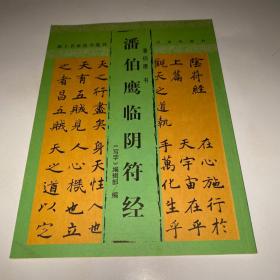 潘伯鹰 书
潘伯鹰临阴符经
《写字》编辑部 编
陰符經
上篇
觀天之道執
天之行盡矣
天有五賊見
之者昌五賊
在心施行於
天宇宙在乎
手萬化生乎
身天性人也
人心機也立
天之道以定